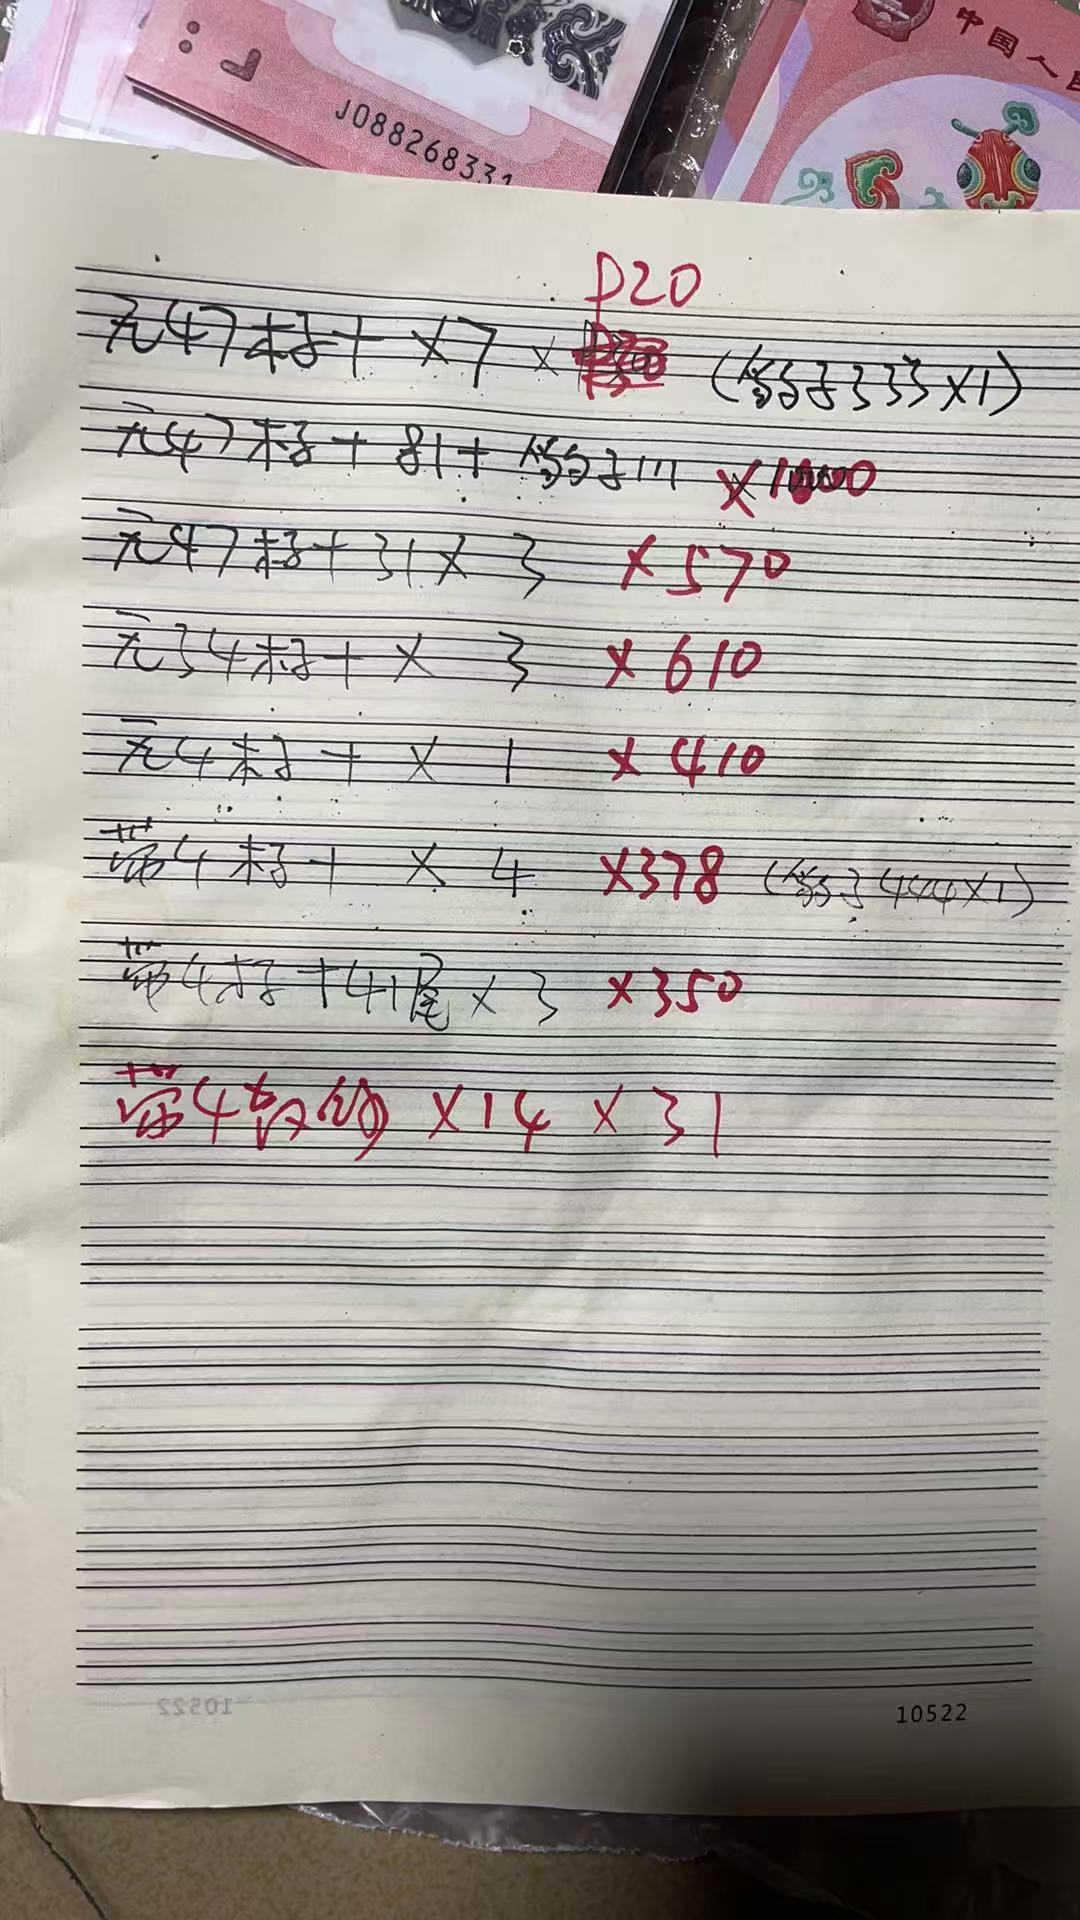 J088268331
中国人民
P20
无47标十 ×7 × (豹子333×1)
无47标十 81+ 豹子111 ×1000
无47标十31× 3 ×570
无34标十 × 3 ×610
无4标十 × 1 ×410
带4标十 × 4 ×378 (豹子444×1)
带4标十41尾×3 ×350
带4散 ×14 ×31
10522